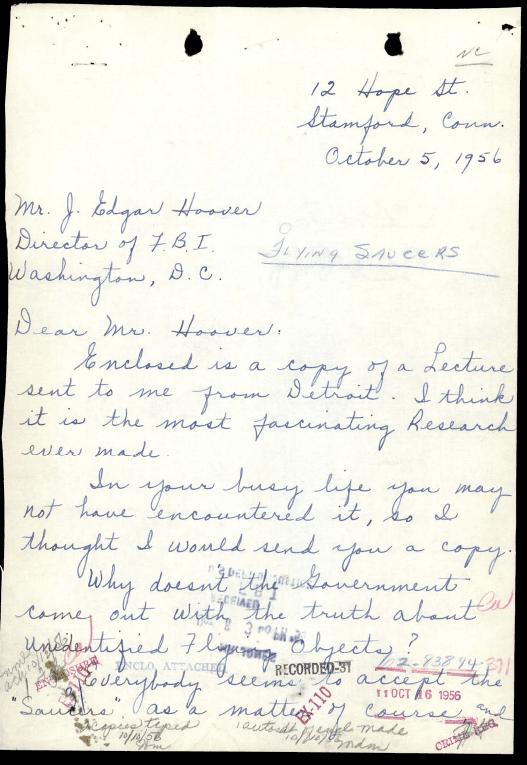 NC
12 Hope St.
Stamford, Conn.
October 5, 1956
Mr. J. Edgar Hoover
Director of F.B.I.
Washington, D.C.
FLYING SAUCERS
Dear Mr. Hoover:
Enclosed is a copy of a Lecture
sent to me from Detroit. I think
it is the most fascinating Research
ever made.
In your busy life you may
not have encountered it, so I
thought I would send you a copy.
Why doesn't the Government
come out with the truth about
Unidentified Flying Objects?
ENCLO. ATTACHED
RECORDED-31
62-83894-391
Everybody seems to accept the
11 OCT 16 1956
"Saucers" as a matter of course and
EX-110
copies typed
10/12/56
made